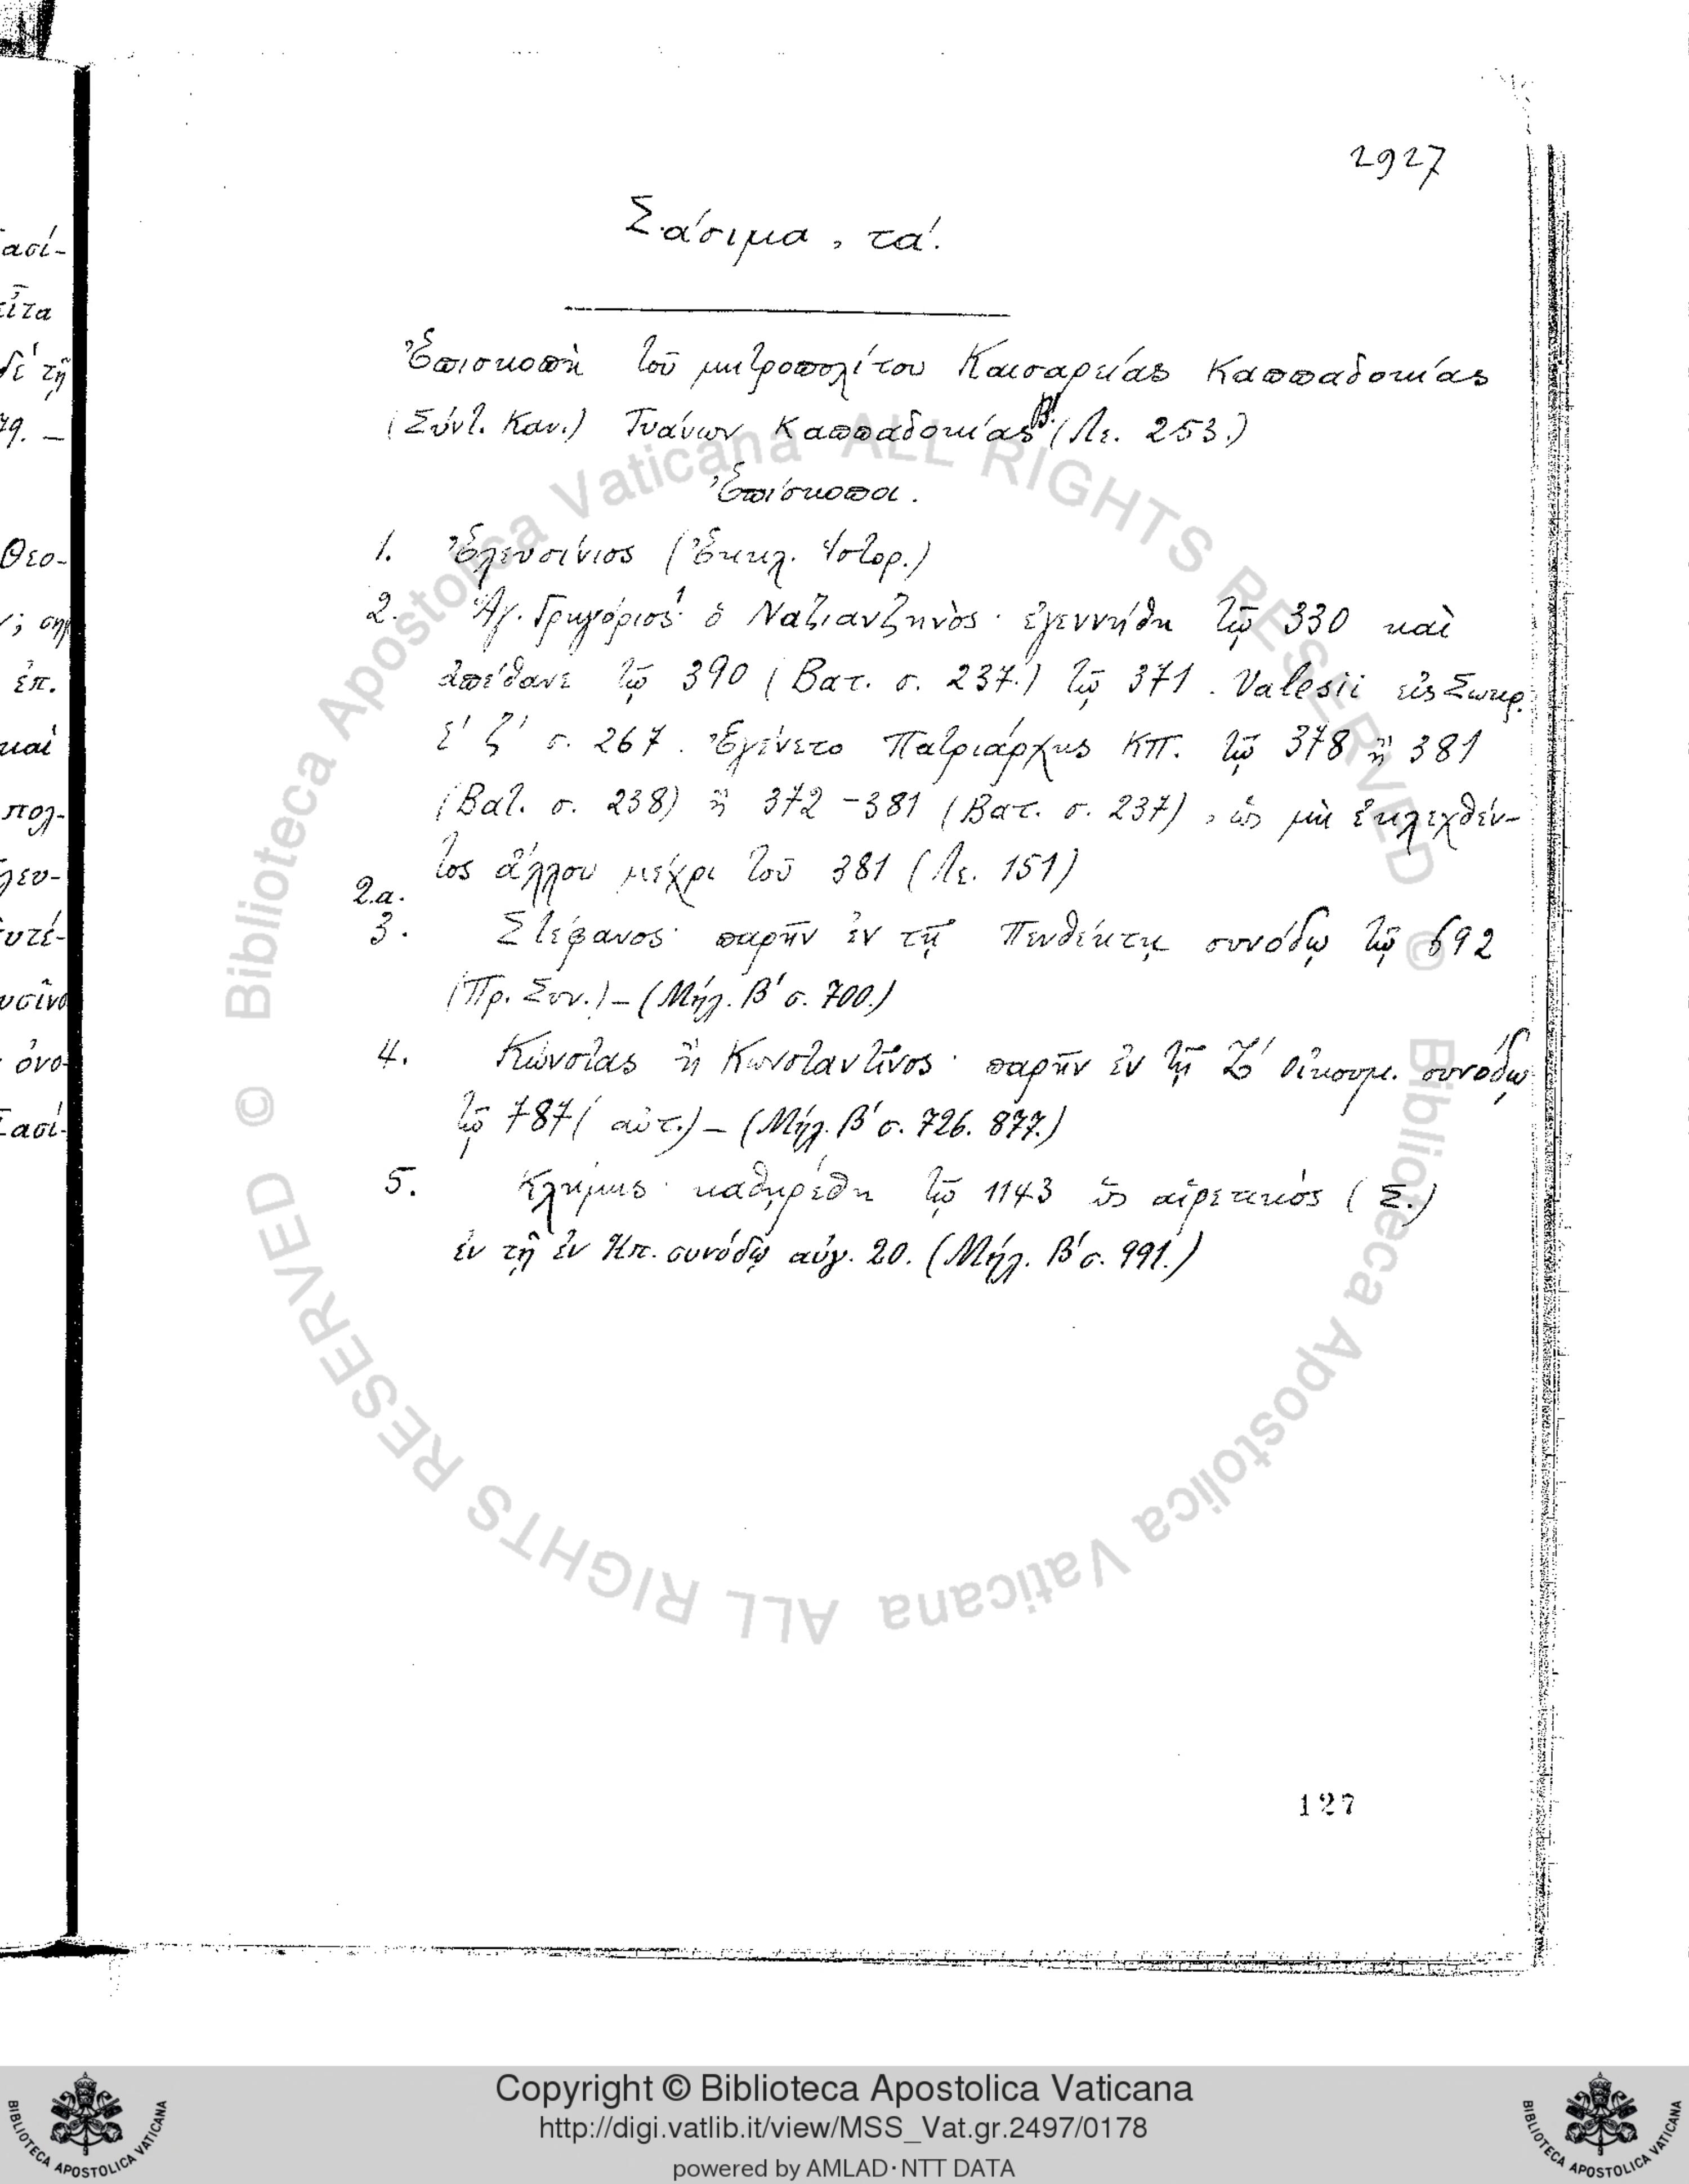 2927
Σάσιμα, τά.
Ἐπισκοπὴ τοῦ μητροπολίτου Καισαρείας Καππαδοκίας
(Σύντ. Καν.) Τυάνων Καππαδοκίας Β' (Λε. 253.)
Ἐπίσκοποι.
1. Ἐλευσίνιος (Ἐκκλ. Ἱστορ.)
2. Ἁγ. Γρηγόριος ὁ Ναζιανζηνὸς· ἐγεννήθη τῷ 330 καὶ
ἀπέθανε τῷ 390 (Βατ. σ. 237.) τῷ 371. Valesii εἰς Σωκρ.
ς' ζ' σ. 267. Ἐγένετο Πατριάρχης ΚΠ. τῷ 378 ἢ 381
(Βατ. σ. 238) ἢ 372-381 (Βατ. σ. 237), ὡς μὴ ἐκλεχθέν-
τος ἄλλου μέχρι τοῦ 381 (Λε. 151)
2.α.
3. Στέφανος· παρῆν ἐν τῇ Πενθέκτῃ συνόδῳ τῷ 692
(Πρ. Συν.) – (Μήλ. Β' σ. 700.)
4. Κώνστας ἢ Κωνσταντῖνος· παρῆν ἐν τῇ Ζ' οἰκουμ. συνόδῳ
τῷ 787 (αὐτ.) – (Μήλ. Β' σ. 726. 877.)
5. Κλήμης· καθῃρέθη τῷ 1143 ὡς αἱρετικός (Σ.)
ἐν τῇ ἐν Κπ. συνόδῳ αὐγ. 20. (Μήλ. Β' σ. 991.)
127
ασί-
εἶτα
δὲ τῇ
79. –
Θεο-
ἐπ.
καὶ
πολ-
λευ-
υτέ-
υσῖνο
ὀνο-
Σασί-
© Biblioteca Apostolica Vaticana ALL RIGHTS RESERVED © Biblioteca Apostolica Vaticana ALL RIGHTS RESERVED
Copyright © Biblioteca Apostolica Vaticana
http://digi.vatlib.it/view/MSS_Vat.gr.2497/0178
powered by AMLAD·NTT DATA
BIBLIOTECA APOSTOLICA VATICANA
BIBLIOTECA APOSTOLICA VATICANA